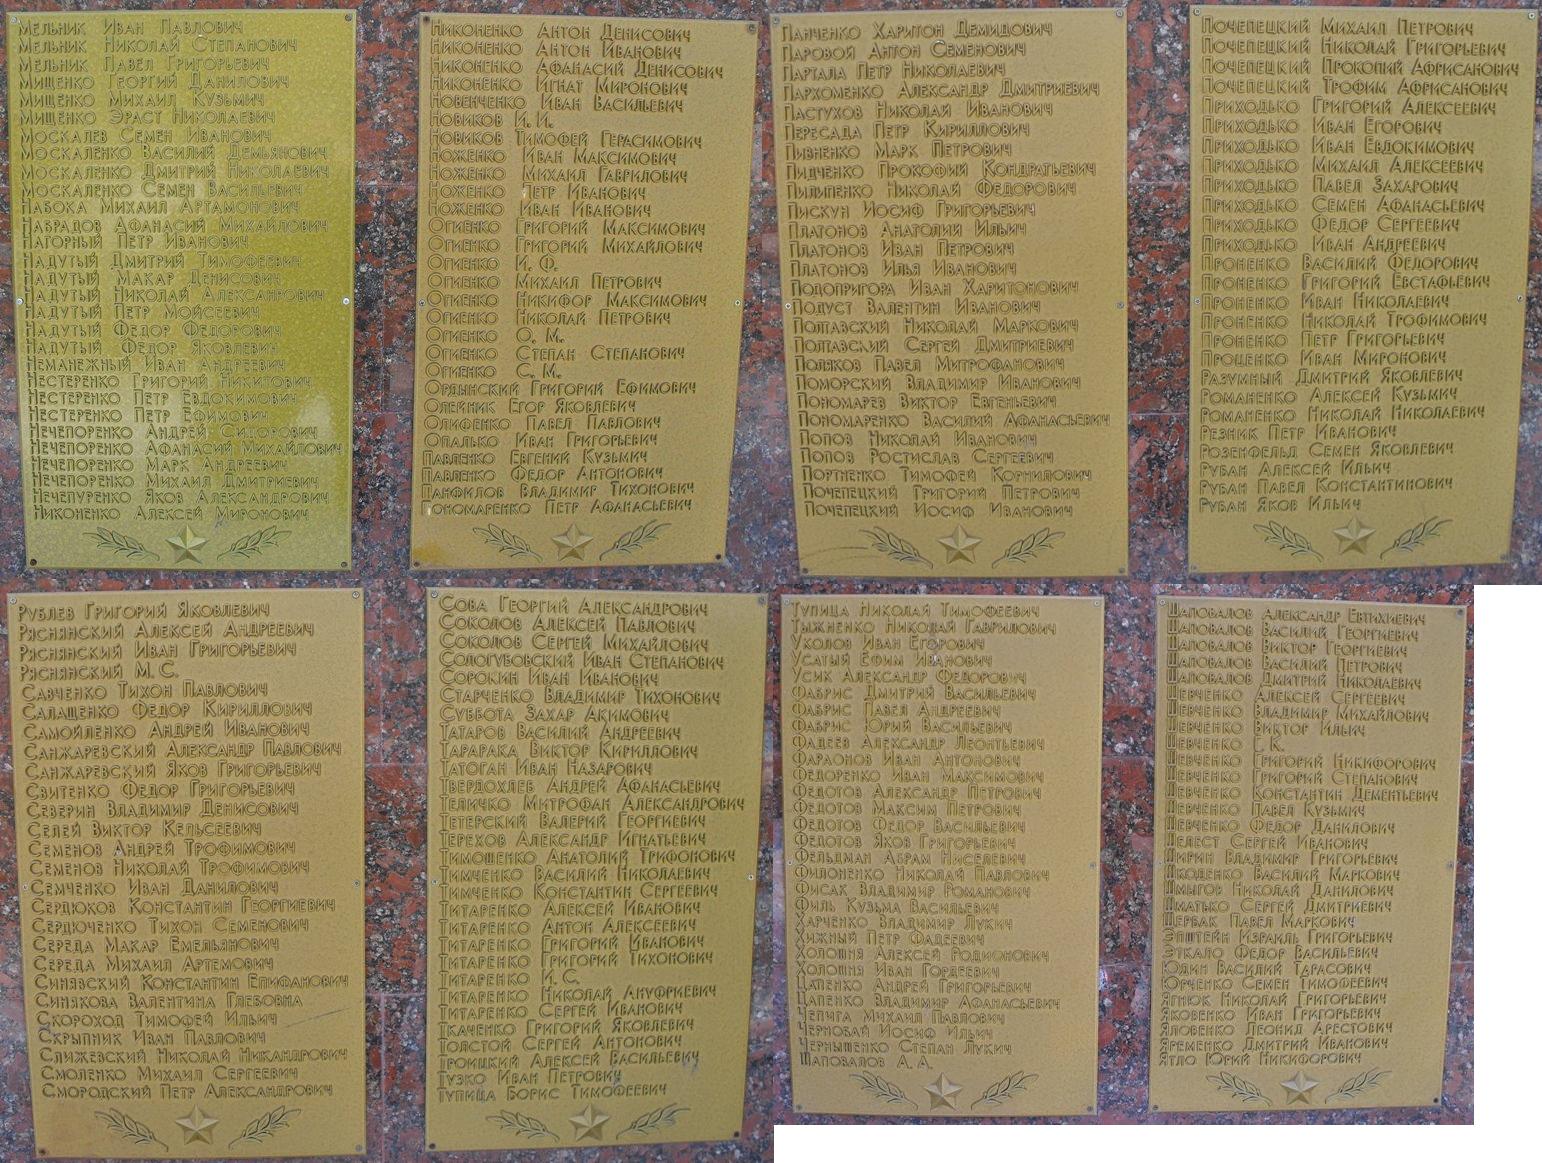 Мельник Иван Павлович
Мельник Николай Степанович
Мельник Павел Григорьевич
Мищенко Георгий Данилович
Мищенко Михаил Кузьмич
Мищенко Эраст Николаевич
Москалев Семен Иванович
Москаленко Василий Демьянович
Москаленко Дмитрий Николаевич
Москаленко Семен Васильевич
Набока Михаил Артамонович
Набрадов Афанасий Михайлович
Нагорный Петр Иванович
Надутый Дмитрий Тимофеевич
Надутый Макар Денисович
Надутый Николай Александрович
Надутый Петр Мойсеевич
Надутый Федор Федорович
Надутый Федор Яковлевич
Неманежный Иван Андреевич
Нестеренко Григорий Никитович
Нестеренко Петр Евдокимович
Нестеренко Петр Ефимович
Нечепоренко Андрей Сидорович
Нечепоренко Афанасий Михайлович
Нечепоренко Марк Андреевич
Нечепоренко Михаил Дмитриевич
Нечепуренко Яков Александрович
Никоненко Алексей Миронович
Никоненко Антон Денисович
Никоненко Антон Иванович
Никоненко Афанасий Денисович
Никоненко Игнат Миронович
Новенченко Иван Васильевич
Новиков И. И.
Новиков Тимофей Герасимович
Ноженко Иван Максимович
Ноженко Михаил Гаврилович
Ноженко Петр Иванович
Ноженко Иван Иванович
Огиенко Григорий Максимович
Огиенко Григорий Михайлович
Огиенко И. Ф.
Огиенко Михаил Петрович
Огиенко Никифор Максимович
Огиенко Николай Петрович
Огиенко О. М.
Огиенко Степан Степанович
Огиенко С. М.
Ордынский Григорий Ефимович
Олейник Егор Яковлевич
Олифенко Павел Павлович
Опалько Иван Григорьевич
Павленко Евгений Кузьмич
Павленко Федор Антонович
Панфилов Владимир Тихонович
Пономаренко Петр Афанасьевич
Панченко Харитон Демидович
Паровой Антон Семенович
Партала Петр Николаевич
Пархоменко Александр Дмитриевич
Пастухов Николай Иванович
Пересада Петр Кириллович
Пивненко Марк Петрович
Пидченко Прокофий Кондратьевич
Пилипенко Николай Федорович
Пискун Иосиф Григорьевич
Платонов Анатолий Ильич
Платонов Иван Петрович
Платонов Илья Иванович
Подопригора Иван Харитонович
Подуст Валентин Иванович
Полтавский Николай Маркович
Полтавский Сергей Дмитриевич
Поляков Павел Митрофанович
Поморский Владимир Иванович
Пономарев Виктор Евгеньевич
Пономаренко Василий Афанасьевич
Попов Николай Иванович
Попов Ростислав Сергеевич
Портненко Тимофей Корнилович
Почепецкий Григорий Петрович
Почепецкий Иосиф Иванович
Почепецкий Михаил Петрович
Почепецкий Николай Григорьевич
Почепецкий Прокопий Африсанович
Почепецкий Трофим Африсанович
Приходько Григорий Алексеевич
Приходько Иван Егорович
Приходько Иван Евдокимович
Приходько Михаил Алексеевич
Приходько Павел Захарович
Приходько Семен Афанасьевич
Приходько Федор Сергеевич
Приходько Иван Андреевич
Проненко Василий Федорович
Проненко Григорий Евстафьевич
Проненко Иван Николаевич
Проненко Николай Трофимович
Проненко Петр Григорьевич
Проценко Иван Миронович
Разумный Дмитрий Яковлевич
Романенко Алексей Кузьмич
Романенко Николай Николаевич
Резник Петр Иванович
Розенфельд Семен Яковлевич
Рубан Алексей Ильич
Рубан Павел Константинович
Рубан Яков Ильич
Рублев Григорий Яковлевич
Ряснянский Алексей Андреевич
Ряснянский Иван Григорьевич
Ряснянский М. С.
Савченко Тихон Павлович
Салащенко Федор Кириллович
Самойленко Андрей Иванович
Санжаревский Александр Павлович
Санжаревский Яков Григорьевич
Свитенко Федор Григорьевич
Северин Владимир Денисович
Селей Виктор Кельсеевич
Семенов Андрей Трофимович
Семенов Николай Трофимович
Семченко Иван Данилович
Сердюков Константин Георгиевич
Сердюченко Тихон Семенович
Середа Макар Емельянович
Середа Михаил Артемович
Синявский Константин Епифанович
Синякова Валентина Глебовна
Скороход Тимофей Ильич
Скрыпник Иван Павлович
Слижевский Николай Никандрович
Смоленко Михаил Сергеевич
Смородский Петр Александрович
Сова Георгий Александрович
Соколов Алексей Павлович
Соколов Сергей Михайлович
Сологубовский Иван Степанович
Сорокин Иван Иванович
Старченко Владимир Тихонович
Суббота Захар Акимович
Татаров Василий Андреевич
Тарарака Виктор Кириллович
Татоган Иван Назарович
Твердохлеб Андрей Афанасьевич
Теличко Митрофан Александрович
Тетерский Валерий Георгиевич
Терехов Александр Игнатьевич
Тимошенко Анатолий Трифонович
Тимченко Василий Николаевич
Тимченко Константин Сергеевич
Титаренко Алексей Иванович
Титаренко Антон Алексеевич
Титаренко Григорий Иванович
Титаренко Григорий Тихонович
Титаренко И. С.
Титаренко Николай Ануфриевич
Титаренко Сергей Иванович
Ткаченко Григорий Яковлевич
Толстой Сергей Антонович
Троицкий Алексей Васильевич
Тузко Иван Петрович
Тупица Борис Тимофеевич
Тупица Николай Тимофеевич
Тыжненко Николай Гаврилович
Ухолов Иван Егорович
Усатый Ефим Иванович
Усик Александр Федорович
Фабрис Дмитрий Васильевич
Фабрис Павел Андреевич
Фабрис Юрий Васильевич
Фадеев Александр Леонтьевич
Фараонов Иван Антонович
Федоренко Иван Максимович
Федотов Александр Петрович
Федотов Максим Петрович
Федотов Федор Васильевич
Федотов Яков Григорьевич
Фельдман Абрам Ниселевич
Филоненко Николай Павлович
Фисак Владимир Романович
Филь Кузьма Васильевич
Харченко Владимир Лукич
Хижный Петр Фадеевич
Холопня Алексей Родионович
Холопня Иван Гордеевич
Цапенко Андрей Григорьевич
Цапенко Владимир Афанасьевич
Чепига Михаил Павлович
Чернобай Иосиф Ильич
Чернышенко Степан Лукич
Шаповалов А. А.
Шаповалов Александр Евтихиевич
Шаповалов Василий Георгиевич
Шаповалов Виктор Георгиевич
Шаповалов Василий Петрович
Шаповалов Дмитрий Николаевич
Шевченко Алексей Сергеевич
Шевченко Владимир Михайлович
Шевченко Виктор Ильич
Шевченко Г. К.
Шевченко Григорий Никифорович
Шевченко Григорий Степанович
Шевченко Константин Дементьевич
Шевченко Павел Кузьмич
Шевченко Федор Данилович
Шелест Сергей Иванович
Ширин Владимир Григорьевич
Шкоденко Василий Маркович
Шмыгов Николай Данилович
Шматько Сергей Дмитриевич
Щербак Павел Маркович
Эпштейн Израиль Григорьевич
Эткало Федор Васильевич
Юдин Василий Тарасович
Юрченко Семен Тимофеевич
Ягнюк Николай Григорьевич
Яковенко Иван Григорьевич
Яловенко Леонид Арестович
Яременко Дмитрий Иванович
Ятло Юрий Никифорович